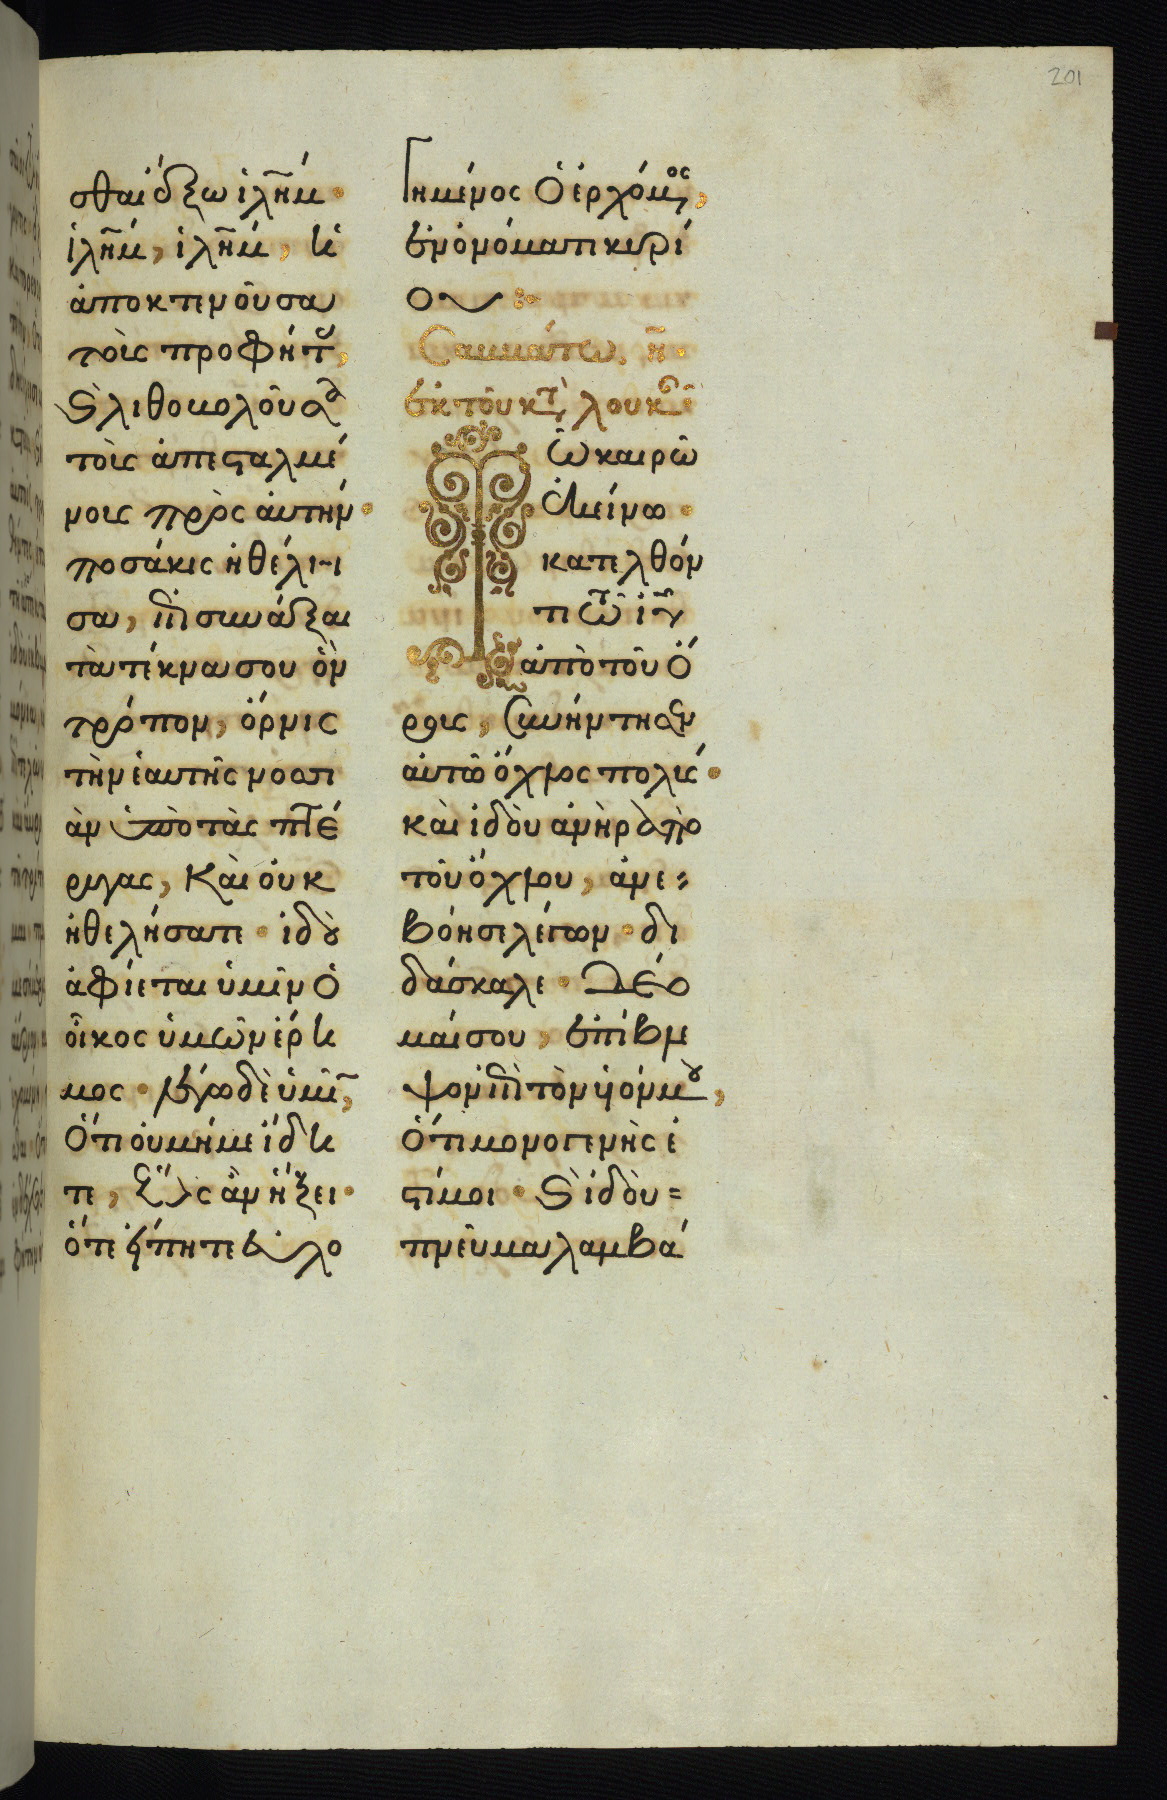 201
σθαι ἔξω ἰλῆμ·
ἰλῆμ, ἰλῆμ, ἡ
ἀποκτενοῦσα
τοὺς προφήτ,
ϗ λιθοβολοῦσα
τοὺς ἀπεσταλμέ
νους πρὸς αὐτήν·
ποσάκις ἠθέλη
σα, ἐπισυνάξαι
τὰ τέκνα σου ὃν
τρόπον, ὄρνις
τὴν ἑαυτῆς νοσσι
ὰν ὑπὸ τὰς πτέ
ρυγας, καὶ οὐκ
ἠθελήσατε· ἰδοὺ
ἀφίεται ὑμῖν ὁ
οἶκος ὑμῶν ἔρη
μος· λέγω δὲ ὑμῖ,
ὅτι οὐ μή με ἴδη
τε, ἕως ἂν ἥξει·
ὅτε εἴπητε εὐλο
γημένος ὁ ἐρχόμος,
ἐν ὀνόματι κυρί
ου
Σαββάτω, η·
ἐκ τοῦ κτ, λουκ
Τῶ καιρῶ
ἐκείνω·
κατελθόν
τι τῶ ἰυ
ἀπὸ τοῦ ὄ
ρους, συνήντησεν
αὐτῶ ὄχλος πολύς·
καὶ ἰδοὺ ἀνὴρ ἀπὸ
τοῦ ὄχλου, ἀνε
βόησε λέγων· δι
δάσκαλε· δέο
μαί σου, ἐπίβλε
ψον ἐπὶ τὸν υἱόν μου,
ὅτι μονογενὴς ἐ
στί μοι· ϗ ἰδοὺ
πνεῦμα λαμβά